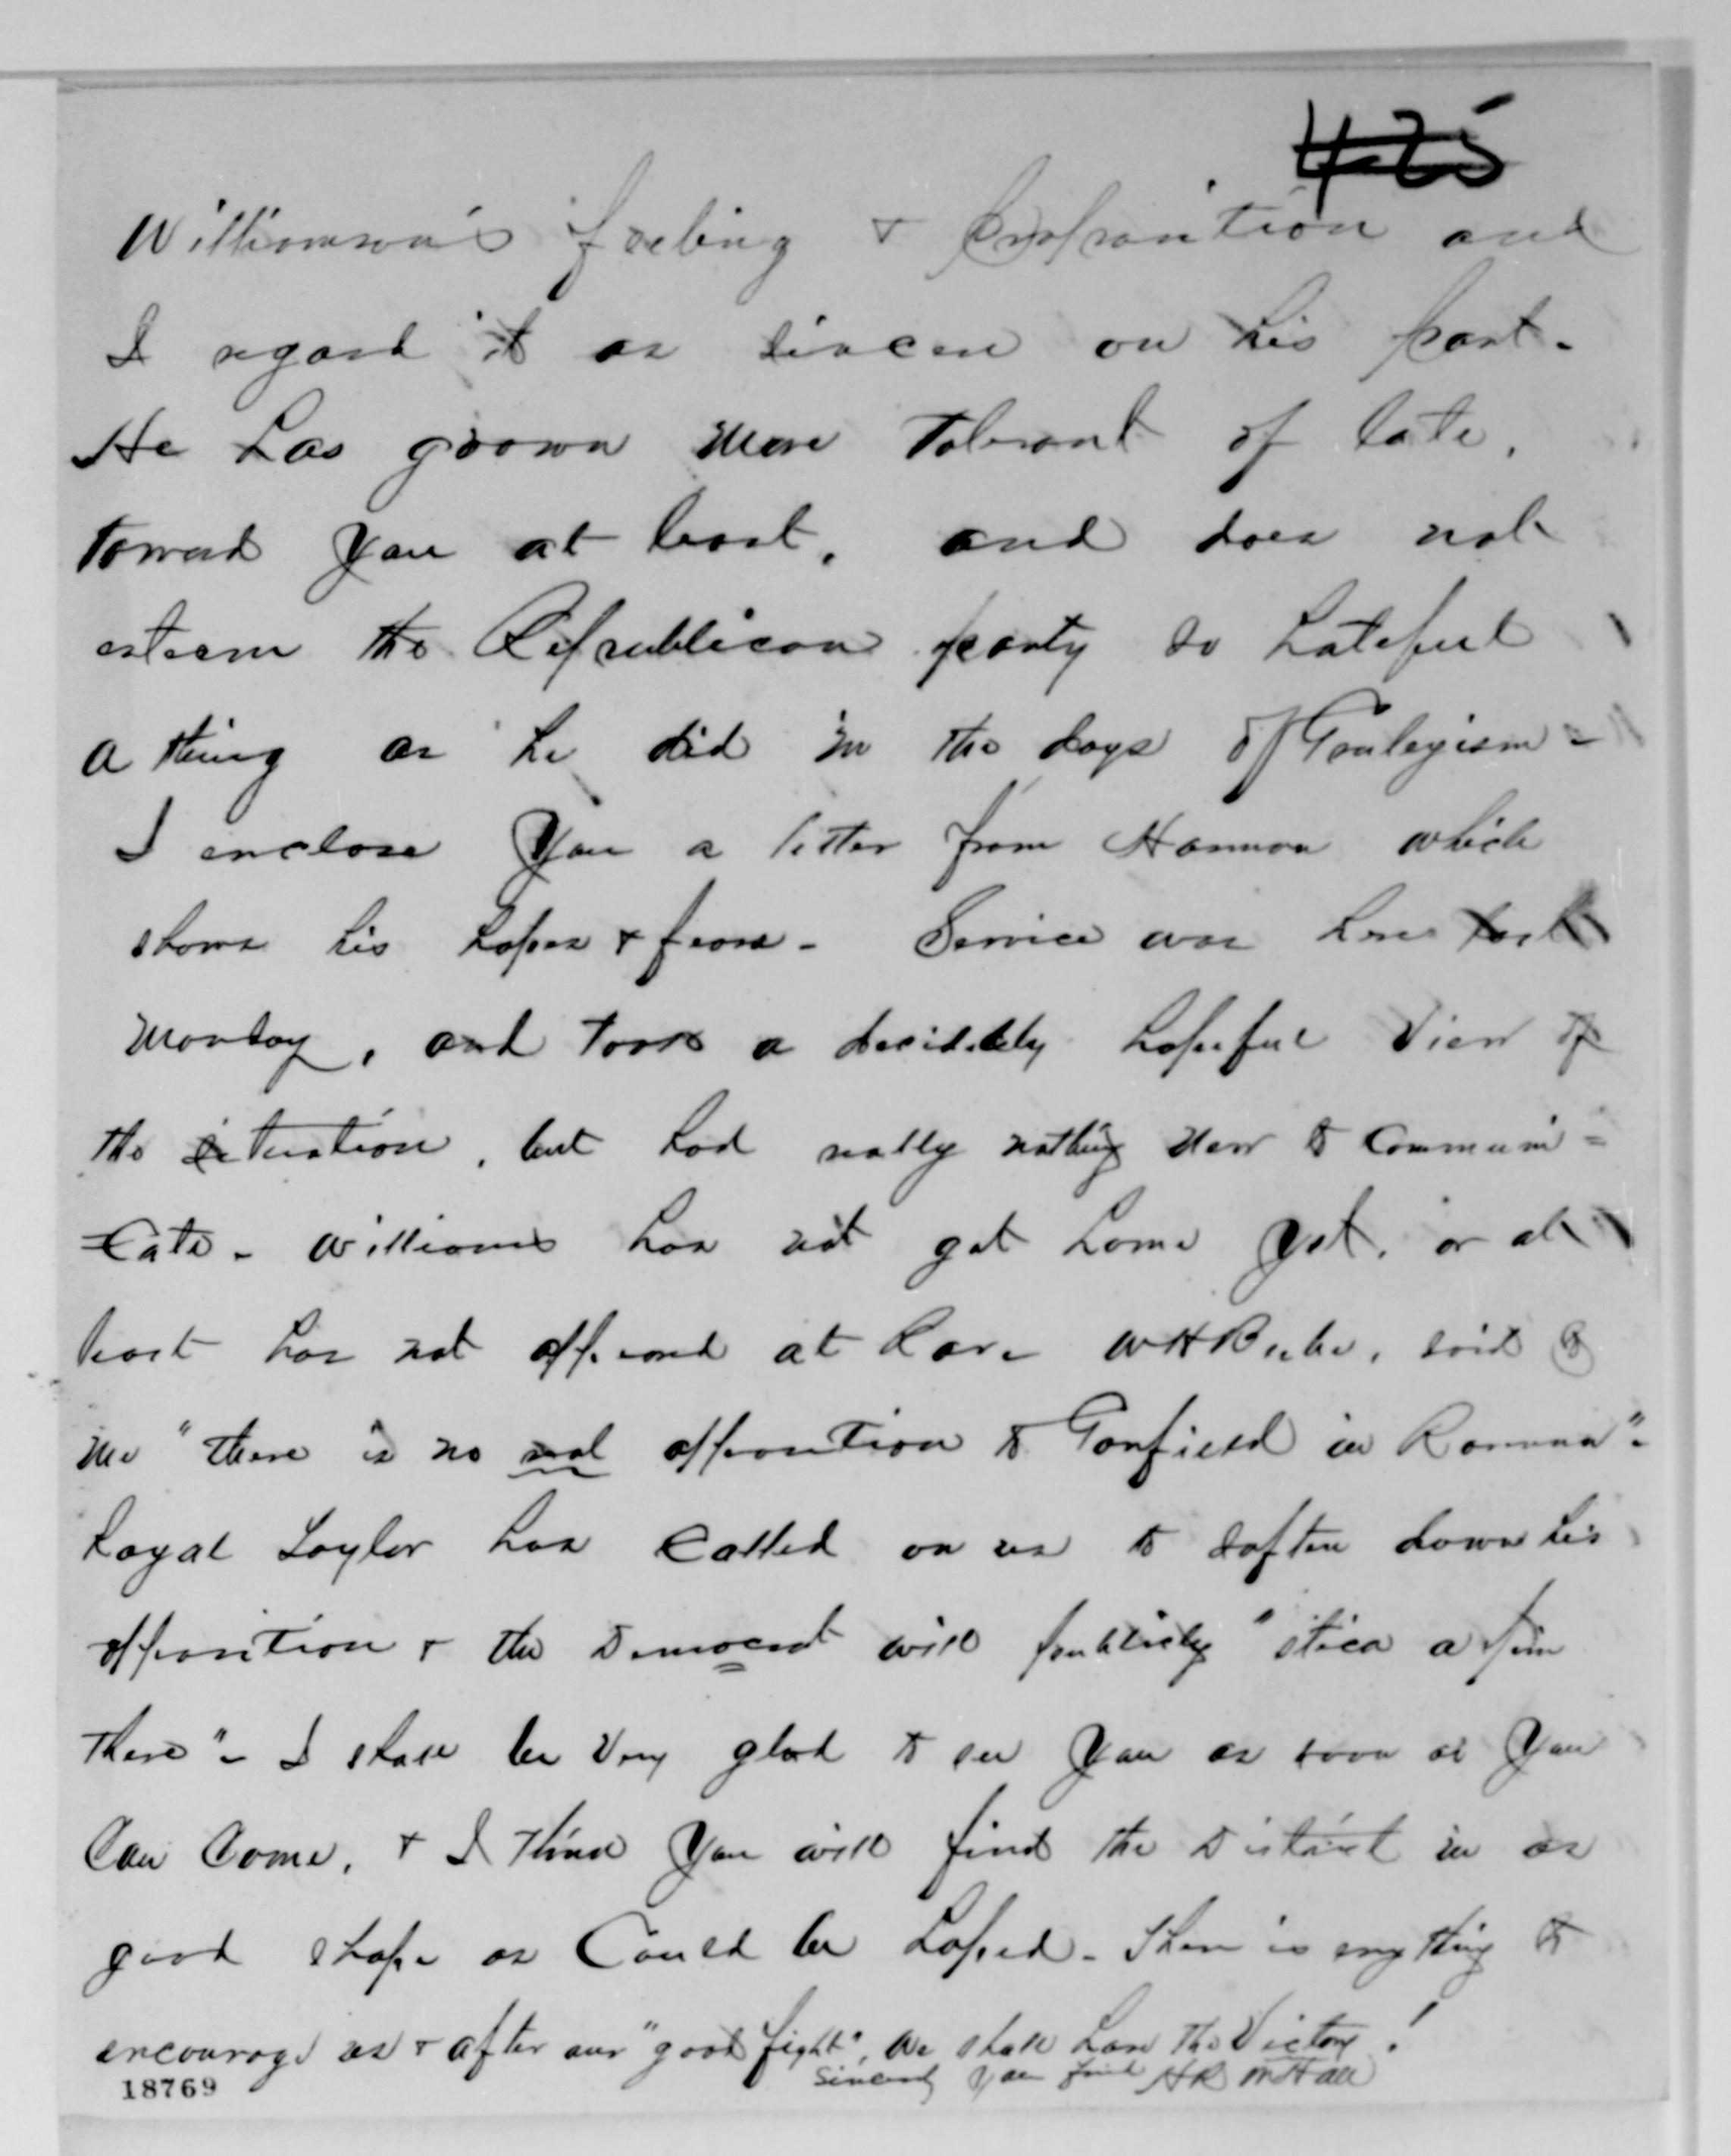 425
Williamson's feeling & proposition and
I regard it as sincere on his part.
He has grown more tolerant of late,
toward you at least, and does not
esteem the Republican party so hateful
a thing as he did in the days of Greeleyism -
I enclose you a letter from Harmon which
shows his hopes & fears - Service was here last
Monday, and took a decidedly hopeful view of
the situation, but had really nothing new to communi=
=cate - Williams has not got home yet, or at
least has not appeared at Rav. W H Beebe, said to
me "there is no real opposition to Garfield in Ravenna" -
Royal Taylor has called on us to soften down his
opposition & the Democrat will publicly "stick a pin
there" - I shall be very glad to see you as soon as you
can come, & I think you will find the District in as
good shape as could be hoped - There is everything to
encourage us & after our "good fight", we shall have the Victory!
Sincerely your friend H R
18769